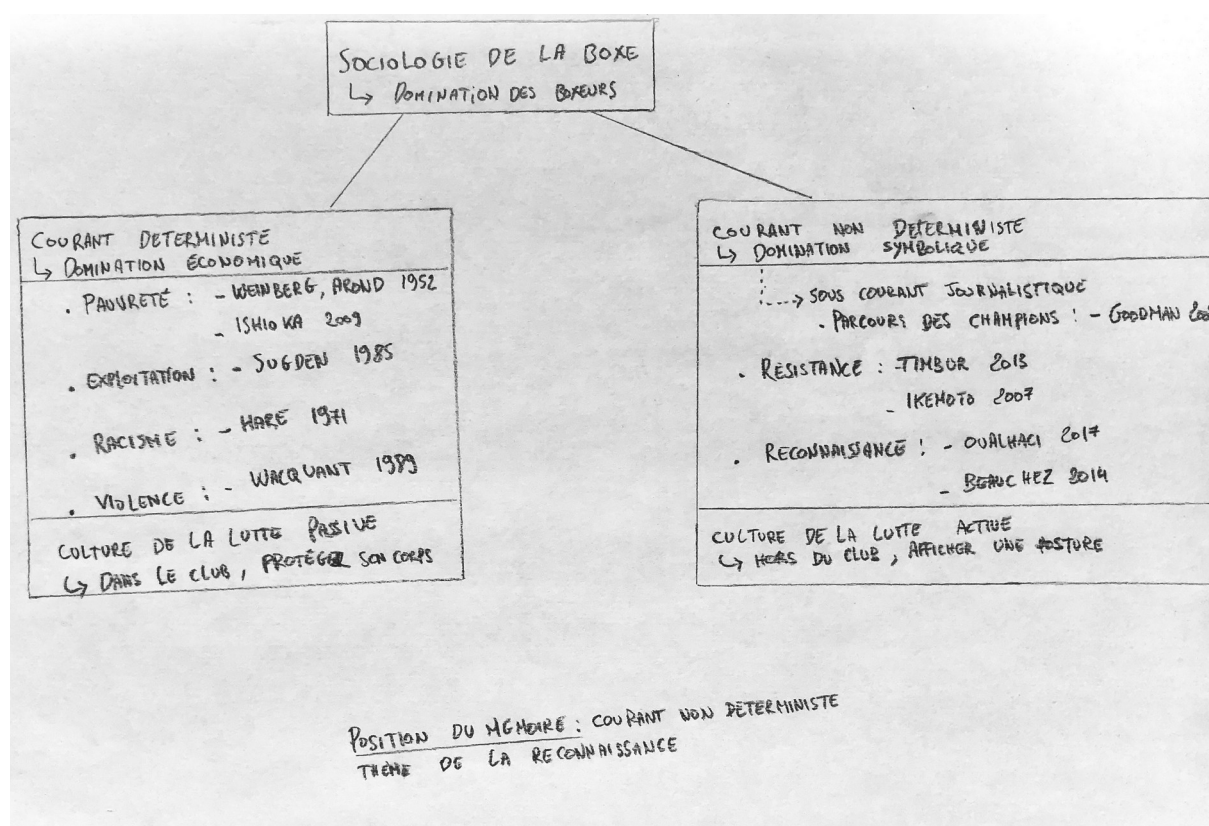 SOCIOLOGIE DE LA BOXE
↳ DOMINATION DES BOXEURS
COURANT DETERMINISTE
↳ DOMINATION ÉCONOMIQUE
. PAUVRETÉ : - WEINBERG, AROND 1952
- ISHIOKA 2009
. EXPLOITATION : - SUGDEN 1985
. RACISME : - HARE 1971
. VIOLENCE : - WACQUANT 1989
CULTURE DE LA LUTTE PASSIVE
↳ DANS LE CLUB, PROTEGER SON CORPS
COURANT NON DETERMINISTE
↳ DOMINATION SYMBOLIQUE
SOUS COURANT JOURNALISTIQUE
. PARCOURS DES CHAMPIONS : - GOODMAN
. RÉSISTANCE : - TIMBUR 2013
- IKEMOTO 2007
. RECONNAISSANCE : - OUALHACI 2017
- BEAUCHEZ 2014
CULTURE DE LA LUTTE ACTIVE
↳ HORS DU CLUB, AFFICHER UNE POSTURE
POSITION DU MÉMOIRE : COURANT NON DÉTERMINISTE
THEME DE LA RECONNAISSANCE